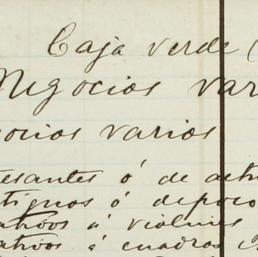 Caja verde (
Negocios var
ocios varios
esantes ó de act
tiguos ó depoco
ativos á violines
ativos á cuadros